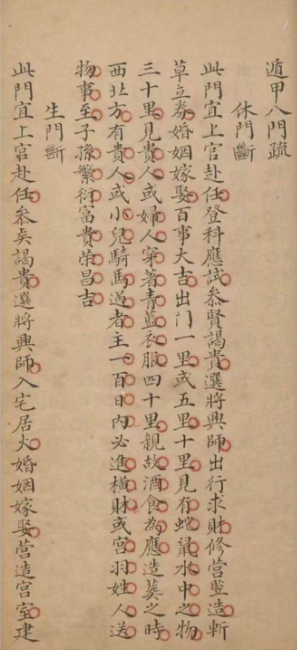 遁甲八門疏
休門斷
此門宜上官赴任登科應試叅賢謁貴選將興師出行求財修營豎造斬
草立券婚姻嫁娶百事大吉出門一里或五里十里見有蛇鼠水中之物
三十里見貴人或婦人穿著青藍衣服四十里親故酒食為應造葬之時
西北方有貴人或小兒騎馬過者主一百日內必進橫財或宮羽姓人送
物事至子孫繁衍富貴榮昌吉
生門斷
此門宜上官赴任叅矣謁貴選將興師入宅居火婚姻嫁娶營造宮室建